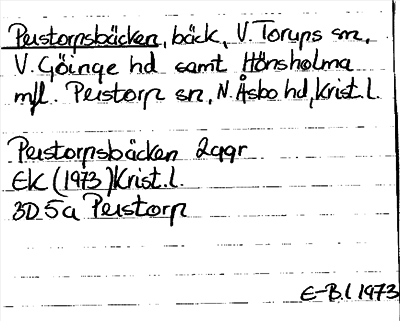 Perstorpsbäcken, bäck, V. Torups sn,
V. Göinge hd samt Hönsholma
mfl. Perstorp sn, N. Åsbo hd, Krist. l.
Perstorpsbäcken 2ggr
EK (1973) Krist. l.
3D 5a Perstorp
E-B.l 1973